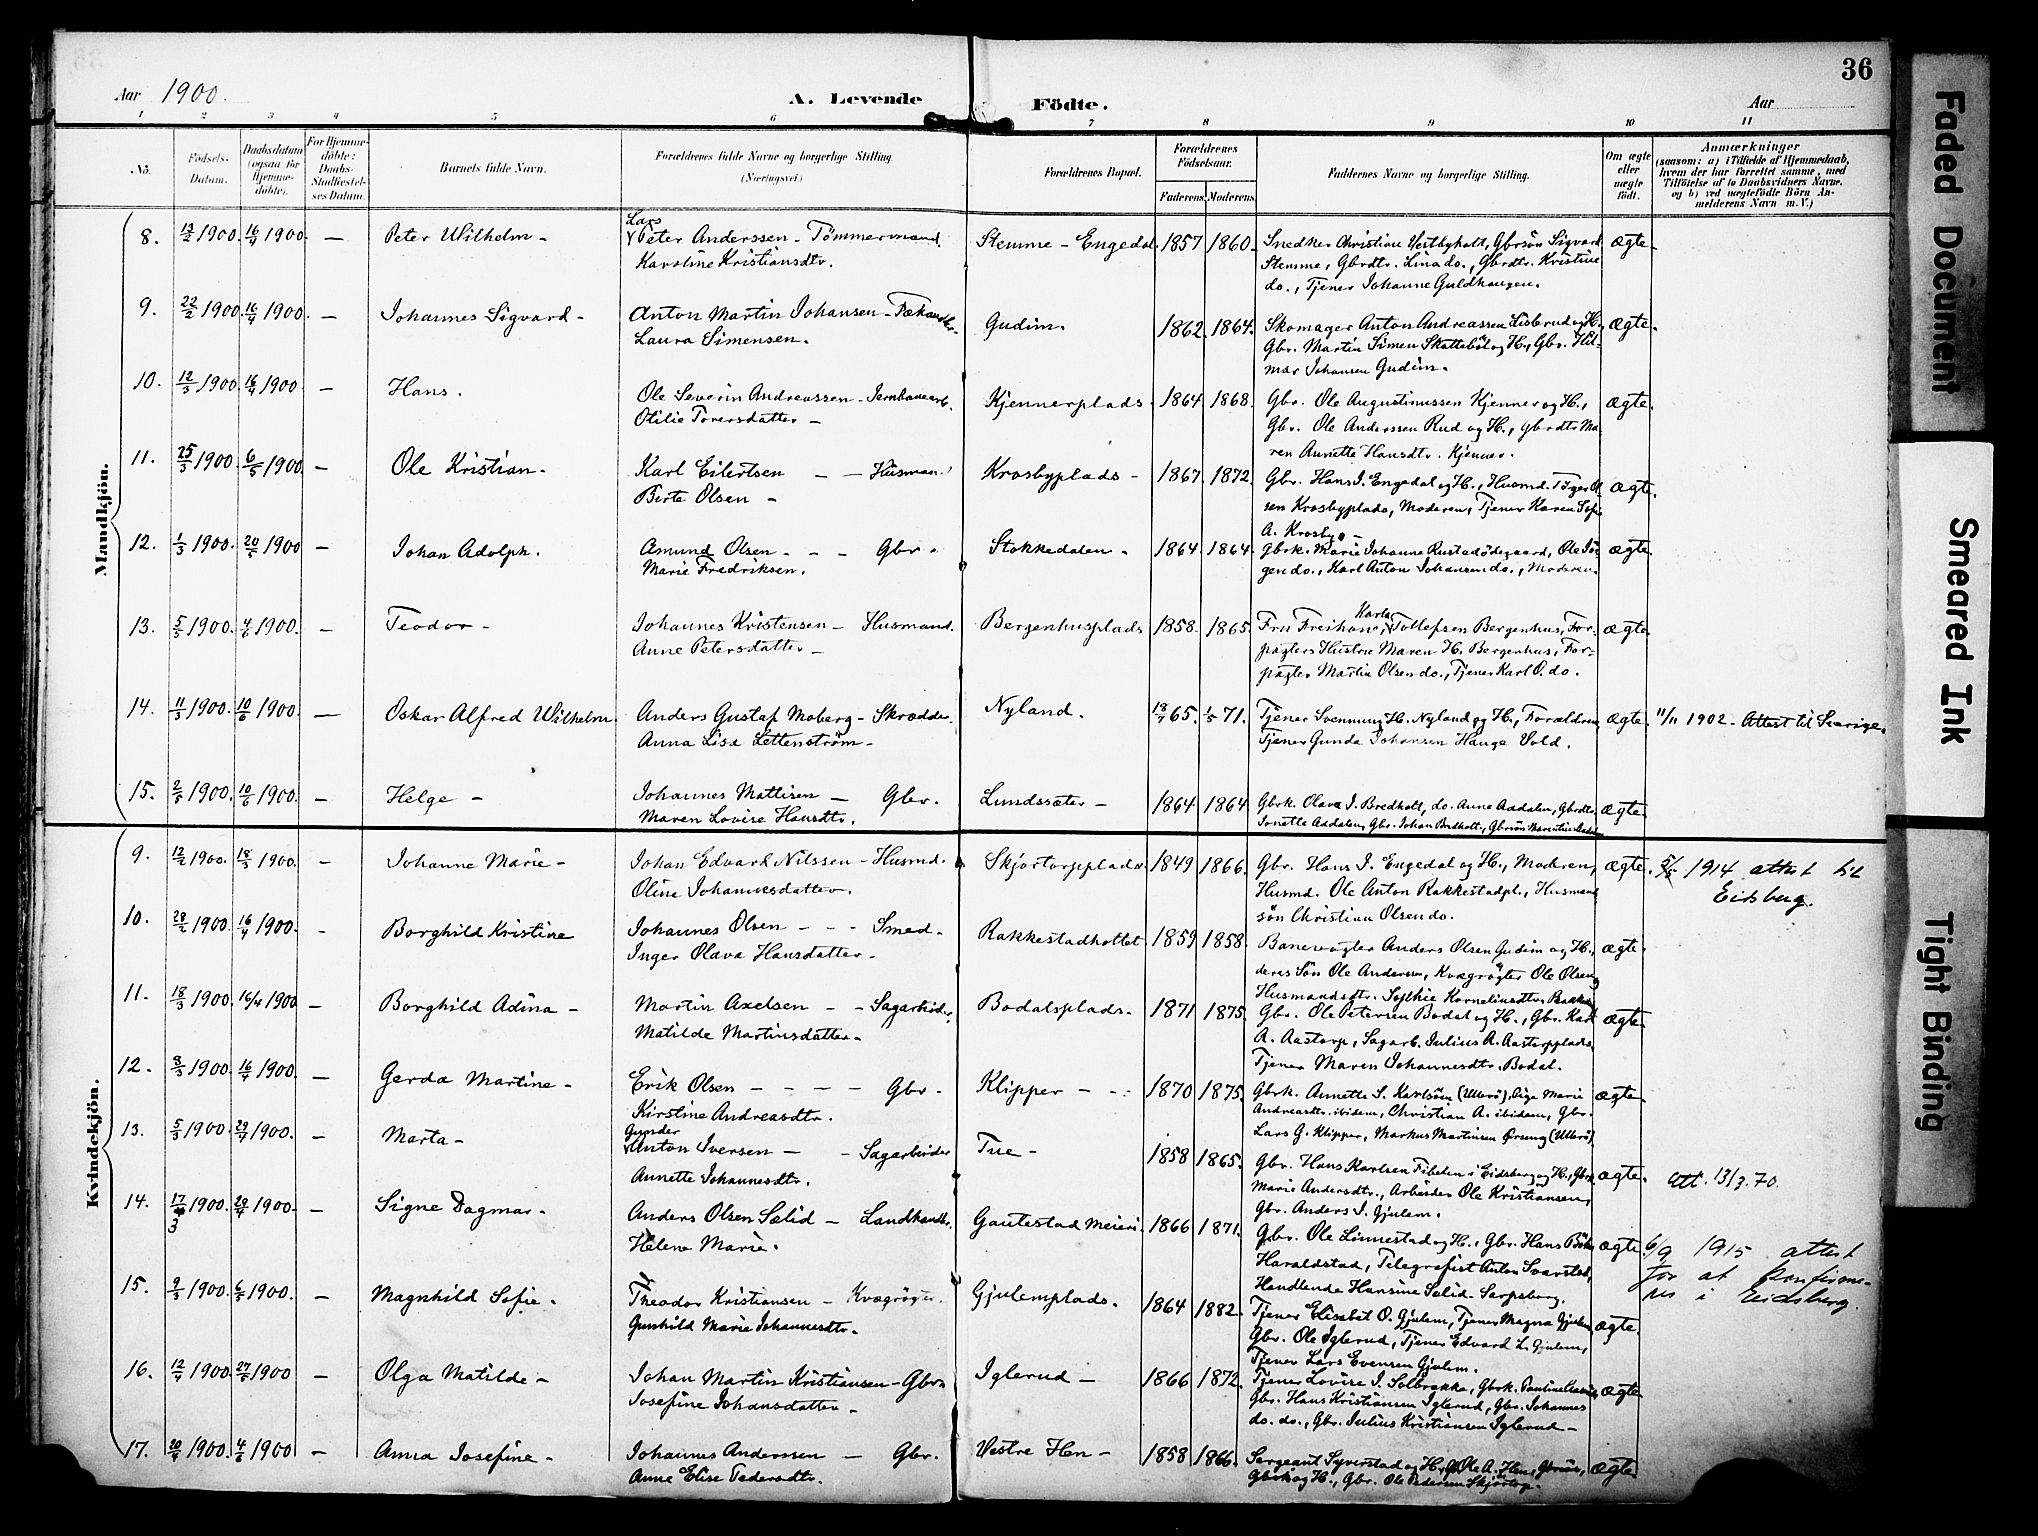 36
Aar 1900. A. Levende Födte. Aar
1 2 3 4 5 6 7 8 9 10 11
No. Födsels-Datum. Daabsdatum (ogsaa for Hjemmedöbte). For Hjemmedöbte: Daabs-Stadfæstelses Datum. Barnets fulde Navn. Forældrenes fulde Navne og borgerlige Stilling. (Næringsvei.) Forældrenes Bopæl. Forældrenes Födselsaar. Faderens. Moderens. Faddernes Navne og borgerlige Stilling. Om ægte eller uægte födt. Anmærkninger (saasom: a) i Tilfælde af Hjemmedaab, hvem der har forrettet samme, med Tilföielse af to Daabsvidners Navne, og b) ved uægtefödte Börn Anmelderens Navn m. V.)
Mandkjön.
Lars
8. 13/2 1900. 16/4 1900. — Peter Wilhelm - Peter Anderssen - Tömmermand. Stemme - Engedal 1857 1860. Snedker Christian Vestbyholt, Gbrsön Sigvard ægte.
Karoline Kristiansdtr. Stemme, Gbrdtr. Lina do., Gbrdtr. Kristine
do., Tjener Johanne Guldhaugen.
9. 22/2 1900. 16/4 1900. — Johannes Sigvard - Anton Martin Johansen - Fæhandler. Gudim. 1862. 1864. Skomager Anton Andreassen Lisbrud og H., ægte.
Laura Simensen. Gbr. Martin Simen Skatteböl og H., Gbr. Hil-
mar Johansen Gudim.
10. 12/3 1900. 16/4 1900. — Hans. Ole Severin Andreassen - Jernbanearb. Kjennerplads. 1864 1868. Gbr. Ole Augustinussen Kjenner og H., ægte.
Otilie Torersdatter - Gbr. Ole Anderssen Rud og H., gbrdtr. Ma-
ren Annette Hansdtr. Kjenner.
11. 25/3 1900. 6/5 1900. — Ole Kristian - Karl Eilertsen - - Husmand Krosbyplads - 1867. 1872. Gbr. Hans J. Engedal og H., Husmd. Törger Ol- ægte.
Berte Olsen - sen Krosbyplads, Moderen, Tjener Karen Sofie
A. Krosby. -
12. 1/3 1900. 20/5 1900 — Johan Adolph. Amund Olsen - - - Gbr. Stokkedalen - 1864. 1864. Gbrk. Marie Johanne Rustadödegaard, Ole Jör- ægte.
Marie Fredriksen. gen do., Karl Anton Johansen do., Moderen.
Karla
13. 5/5 1900. 4/6 1900. — Teodor - Johannes Kristensen - Husmand. Bergenhusplads 1858. 1865. Fru Freihow, Tollefsen Bergenhus, For- ægte.
Anne Petersdatter - pagters Hustru Maren H. Bergenhus, For-
pagter Martin Olsen do., Tjener Karl O. do.
14. 11/3 1900. 10/6 1900. — Oskar Alfred Wilhelm. Anders Gustaf Moberg - Skrædder. Nyland. 18/7 65. 1/5 71. Tjener Svennung H. Nyland og H., Forældrene, ægte. 11/11 1902 - Attest til Sverige.
Anna Lisa Lettenström - Tjener Gunda Johansen Hauge Vold.
15. 2/5 1900. 10/6 1900. — Helge - Johannes Mattisen - Gbr. Lundssæter - 1864 1864 Gbrk. Olava J. Bredholt, do. Anne Aadalen, Gbrdtr. ægte.
Maren Lovise Hansdtr. Jonette Aadalen, Gbr. Johan Bredholt, Gbrsön Marentius
Kvindekjön.
9. 12/2 1900. 18/3 1900. — Johanne Marie - Johan Edvard Nilssen - Husmd. Skjortorpplads. 1849 1866. Gbr. Hans J. Engedal og H., Moderen, ægte. 5/5 1914 attest til
Oline Johannesdatter. Husmd. Ole Anton Rakkestadpl., Husmand- Eidsberg.
sön Christian Olsen do.
10. 28/2 1900. 16/4 1900. — Borghild Kristine Johannes Olsen - - - Smed - Rakkestadholtet 1859 1858. Banevogter Anders Olsen Gudim og H., ægte.
Inger Olava Hansdatter - deres Sön Ole Andersen, Kvægrögter Ole Olsen
Husmandsdtr. Sophie Korneliusdtr.
11. 18/3 1900. 16/4 1900 — Borghild Adina - Martin Axelsen - - Sagarbeider, Bodalsplads. 1871 1875. Gbr. Ole Petersen Bodal og H., Gbr. Karl ægte.
Matilde Martinsdatter. A. Aastorp, Sagarb. Julius A. Aastorpplads,
Tjener Maren Johannesdtr. Bodal.
12. 8/3 1900. 16/4 1900. — Gerda Martine - Erik Olsen - - - - Gbr - Klipper - - 1870 1875. Gbrk. Annette S. Karlsöen (Ullerö), Pige Marie ægte.
Kirstine Andreasdtr. Andreasdtr. ibidem, Christian A. ibidem, Gbr.
Lars G. Klipper, Markus Martinsen Örseng (Ullerö)
Gunder
13. 5/3 1900. 29/4 1900. — Marta - Anton Iversen - - Sagarbeider Tue - 1858 1865. Gbr. Hans Karlsen Fibelen i Eidsberg og H., Gbrk. ægte. att. 13/3. 70.
Annette Johannesdtr. Marie Andersdtr., Arbeider Ole Kristiansen,
Gbr. Anders J. Gjulem.
14. 17/3 1900. 29/4 1900. — Signe Dagmar. Anders Olsen Sælid - Landhandler. Gautestad Meieri. 1866 1871. Gbr. Ole Linnestad og H., Gbr. Hans ægte. 6/9 1915 attest
Helene Marie. Haraldstad, Telegrafist Anton Svarstad, for at konfirme-
Handlende Hansine Sælid Sarpsborg. res i Eidsberg.
15. 9/3 1900. 6/5 1900. — Magnhild Sofie. Theodor Kristiansen - Kvægrögter. Gjulemplads. 1864 1882. Tjener Elisabet O. Gjulem, Tjener Magna Gjulem ægte.
Gunhild Marie Johannesdtr. Gbr. Ole Iglerud, Tjener Edvard L. Gjulem,
Tjener Lars Evensen Gjulem.
16. 12/4 1900. 27/5 1900 — Olga Matilde - Johan Martin Kristiansen - Gbr. Iglerud - 1866 1872. Tjener Lovise J. Solbrække, Gbrk. Pauline ægte
Josefine Johansdatter - Gbr. Hans Kristiansen Iglerud, Gbr. Johannes
do. do., Gbr. Julius Kristiansen Iglerud -
17. 20/4 1900. 4/6 1900 — Anna Josefine - Johannes Anderssen - Gbr. Vestre Hen - 1858 1866. Sergeant Syverstad og H., Ole A. Hen, ægte
Anne Elise Pedersdtr. og H., Gbr. Ole Pedersen Skjörtorp.
Faded Document
Smeared Ink
Tight Binding